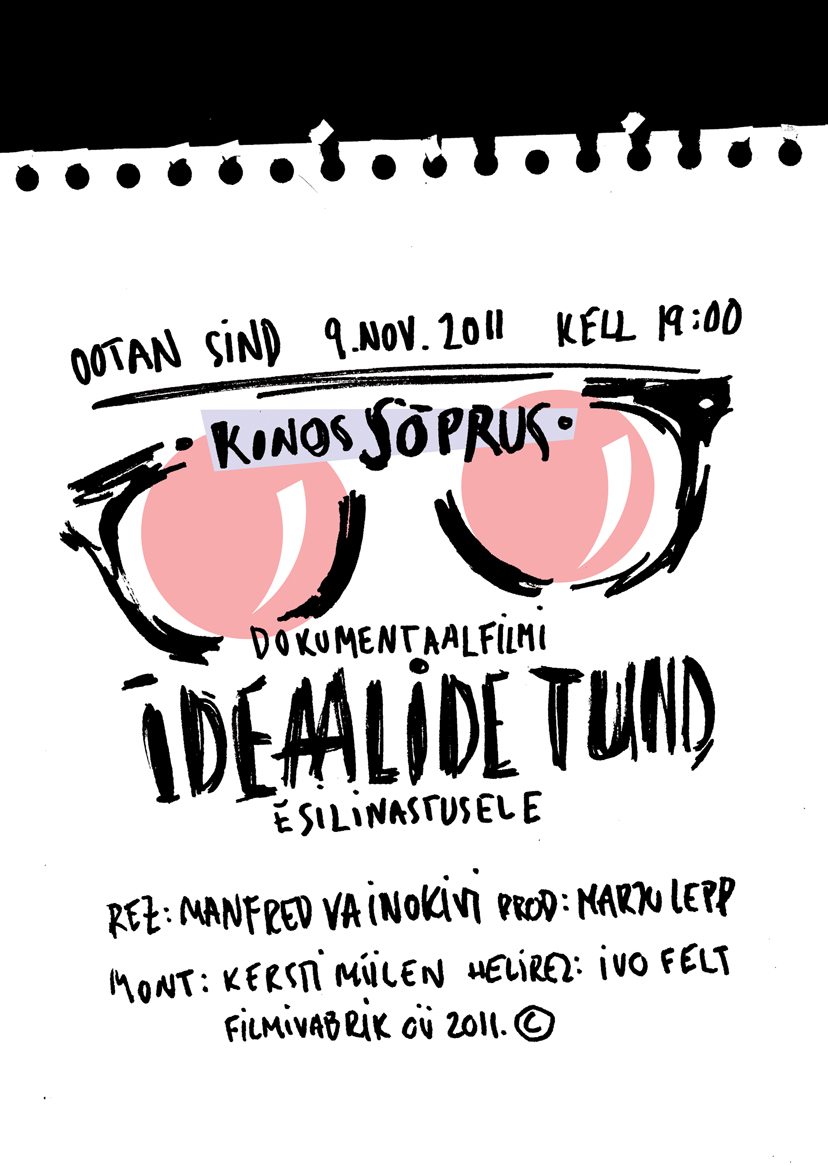 OOTAN SIND 9.NOV.2011 KELL 19:00
KINOS SÕPRUS.
DOKUMENTAALFILMI
IDEAALIDE TUND,
ESILINASTUSELE
REŽ: MANFRED VAINOKIVI PROD: MARJU LEPP
MONT: KERSTI MIILEN HELIREŽ: IVO FELT
FILMIVABRIK OÜ 2011. ©